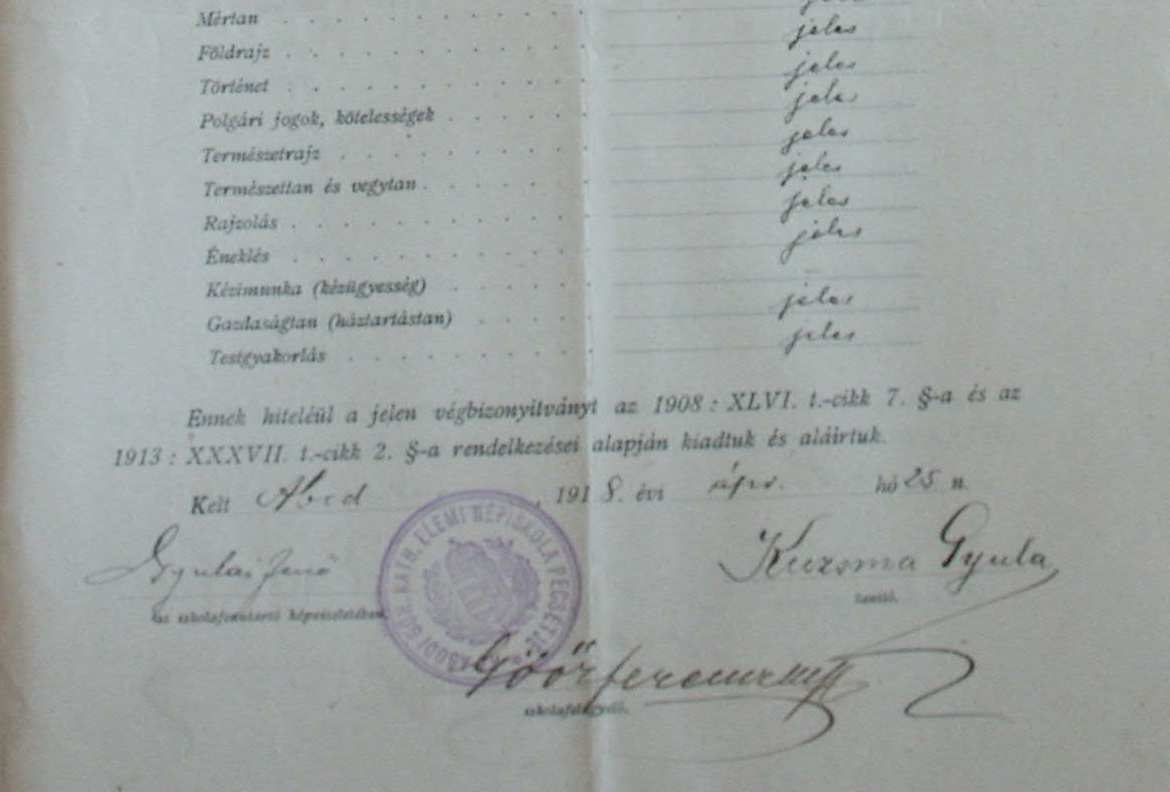 Mértan . . . . . . . . . . jeles
Földrajz . . . . . . . . . . jeles
Történet . . . . . . . . . . jeles
Polgári jogok, kötelességek . . . . . . jeles
Természetrajz . . . . . . . . jeles
Természettan és vegytan . . . . . . jeles
Rajzolás . . . . . . . . . jeles
Éneklés . . . . . . . . . . jeles
Kézimunka (kézügyesség) . . . . .
Gazdaságtan (háztartástan) . . . . jeles
Testgyakorlás . . . . . . . . jeles
Ennek hiteléül a jelen végbizonyítványt az 1908 : XLVI. t.-cikk 7. §-a és az
1913 : XXXVII. t.-cikk 2. §-a rendelkezései alapján kiadtuk és aláirtuk.
Kelt Abod, 1918. évi ápr. hó 25 n.
Gyulai Jenő
az iskolafenntartó képviseletében.
KATH. ELEMI NÉPISKOLA PECSÉTJE
Kuzsma Gyula
tanító.
Göőr Ferenc
iskolafelügyelő.